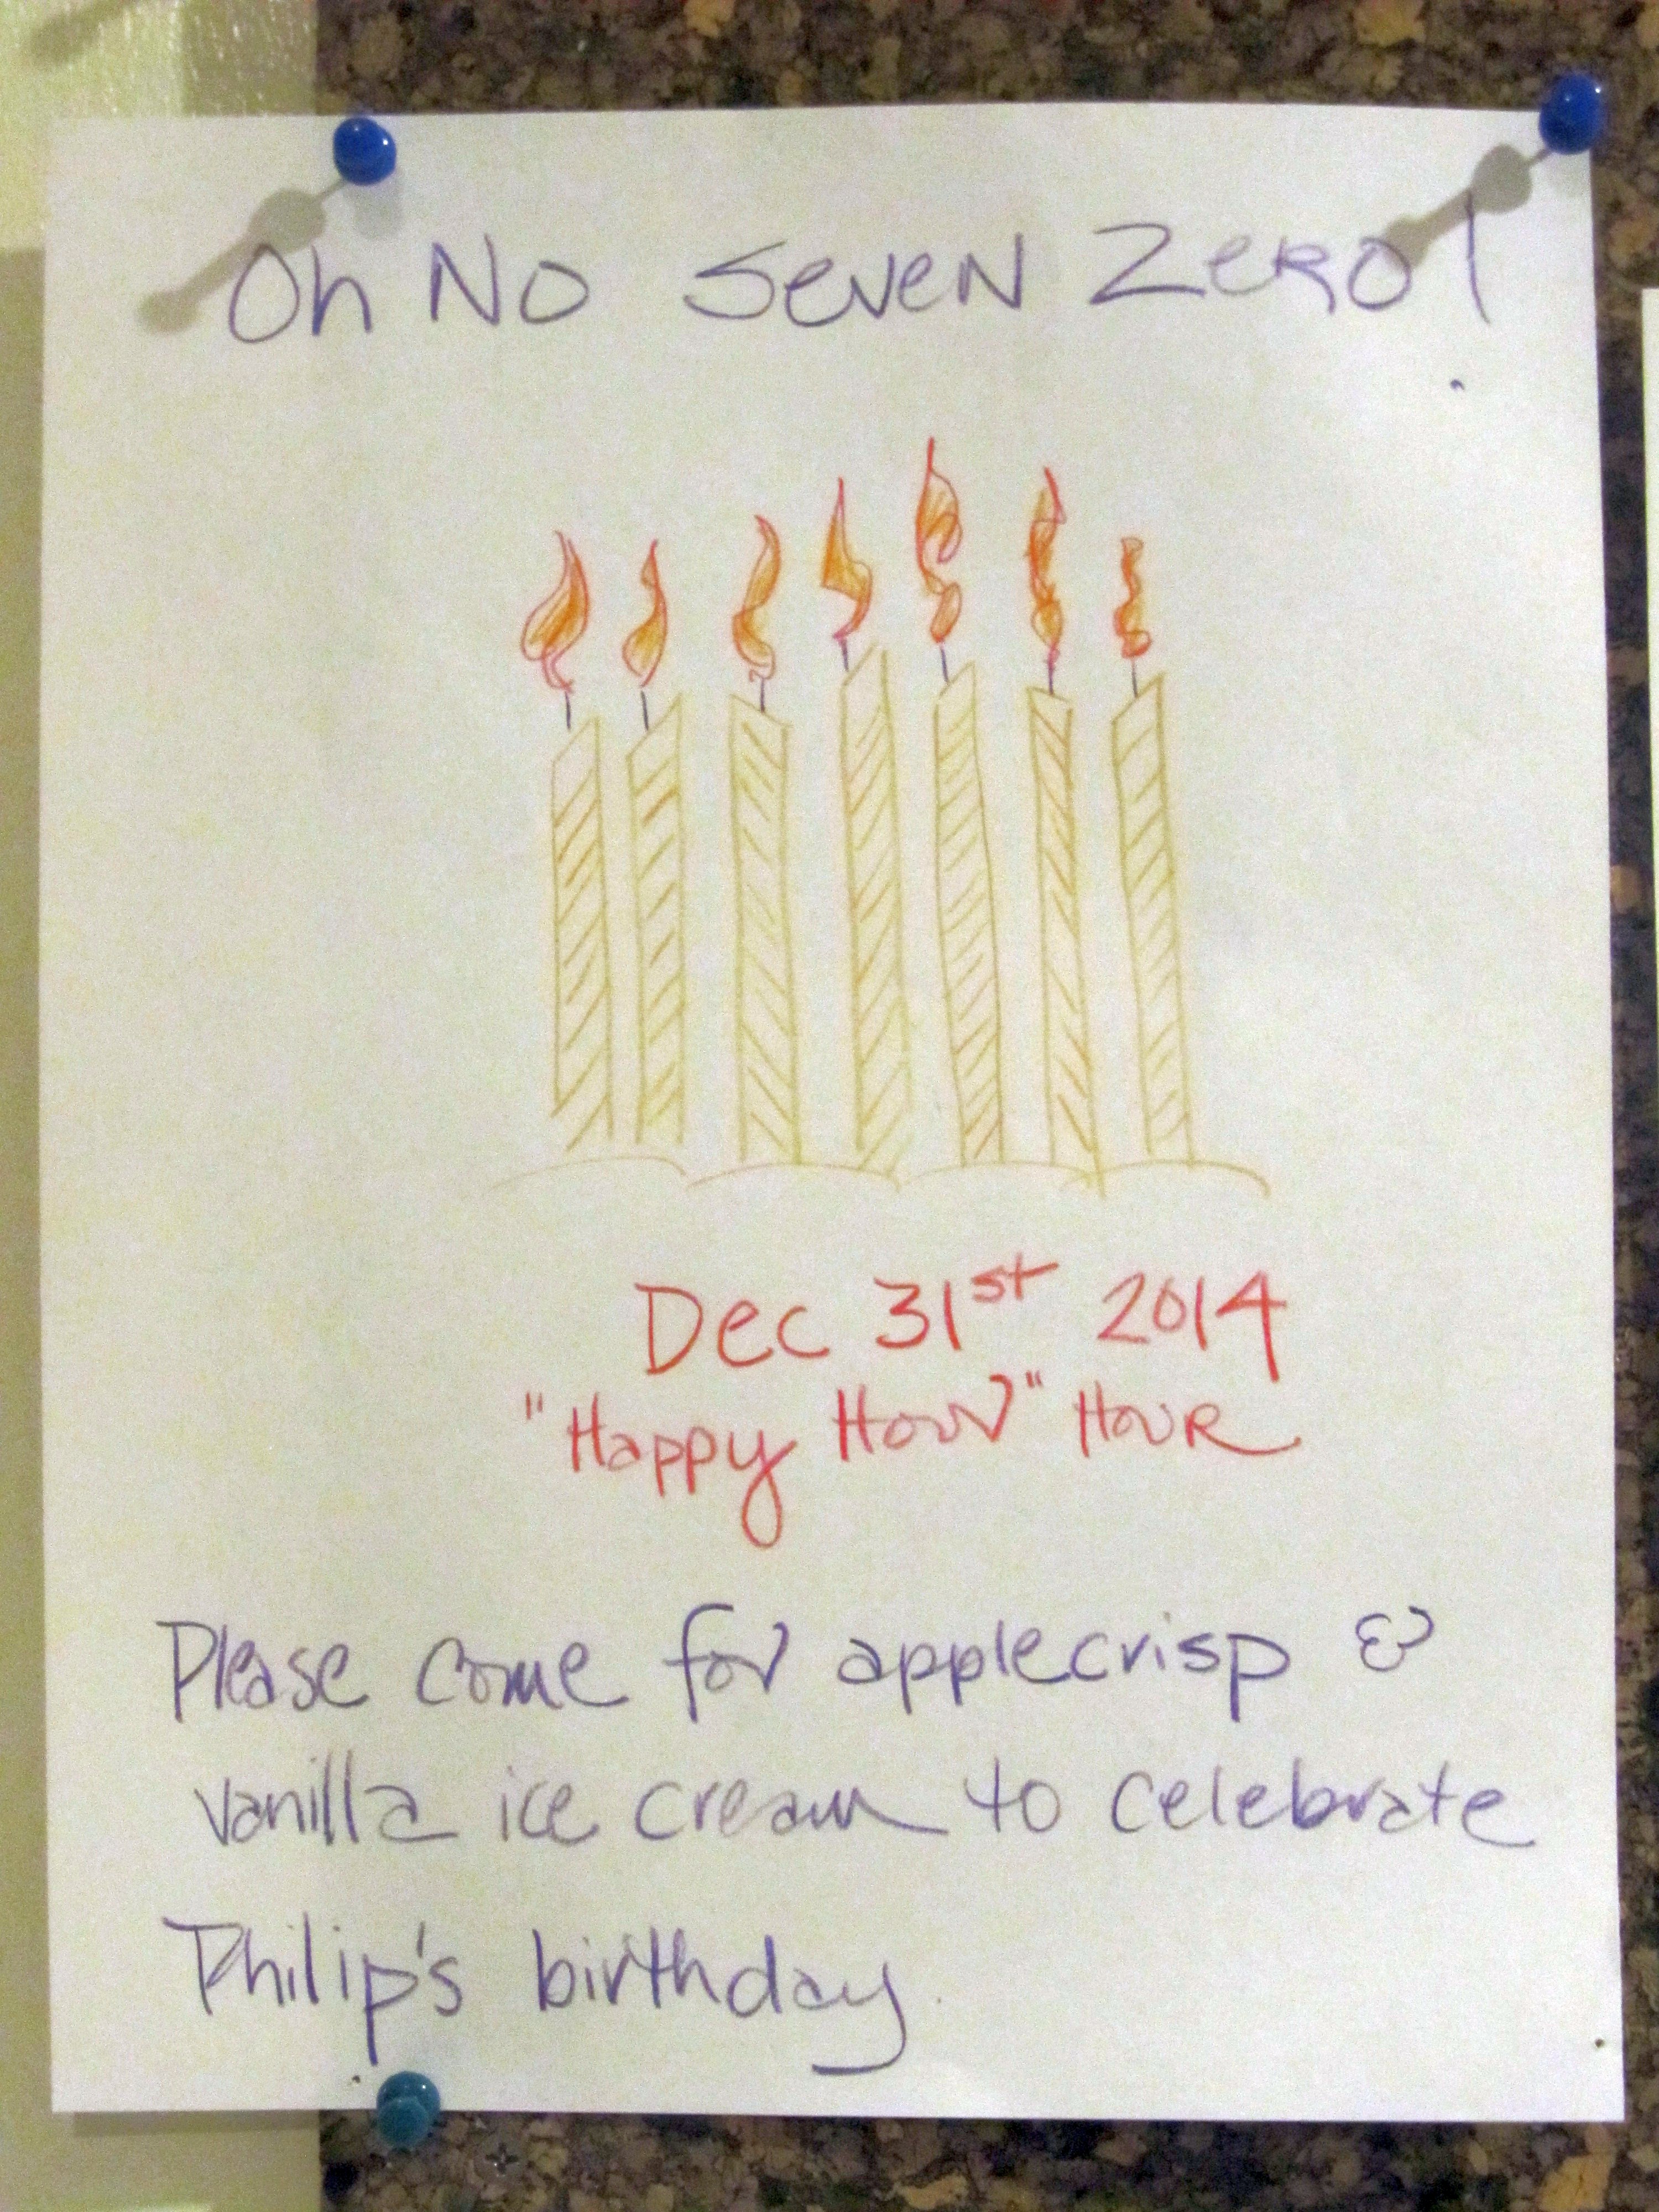 Oh No Seven Zero!
Dec 31st 2014
"Happy Hour" Hour
Please come for applecrisp &
vanilla ice cream to celebrate
Philip's birthday.